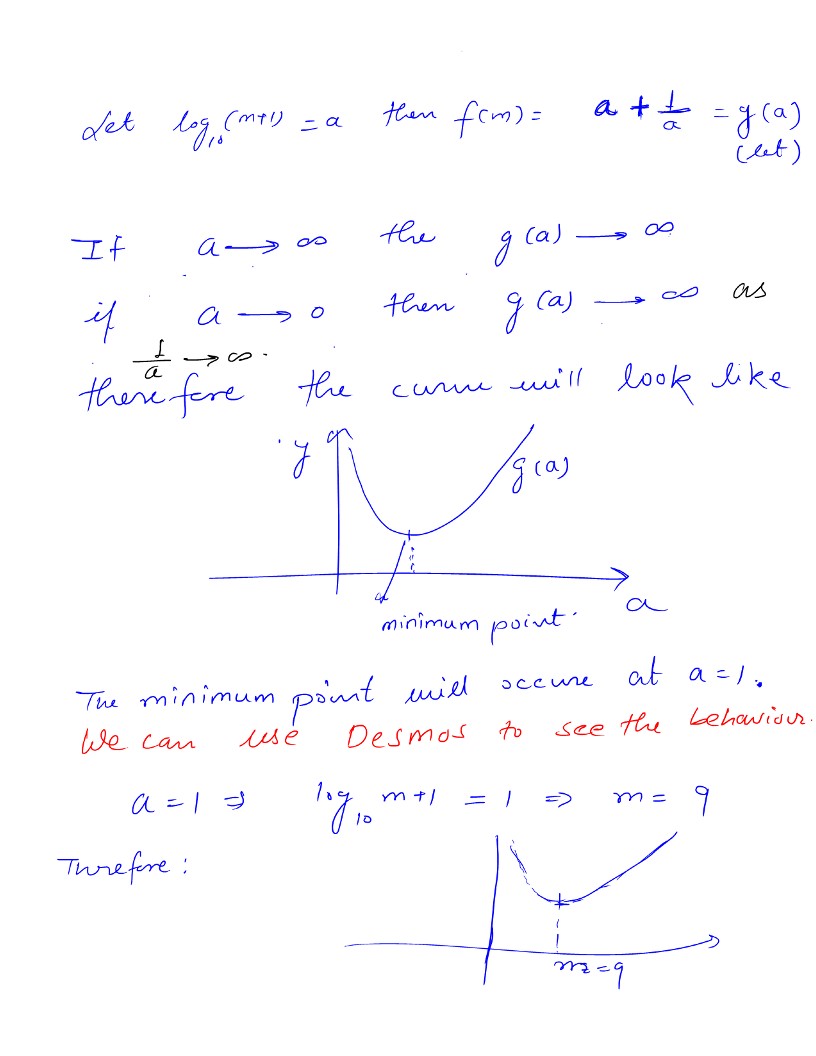 Let log₁₀(m+1) = a then f(m) = a + 1/a = g(a)
(let)
If a → ∞ the g(a) → ∞
if a → 0 then g(a) → ∞ as
1/a → ∞.
therefore the curve will look like
y
g(a)
a
minimum point.
The minimum point will occure at a=1.
We can use Desmos to see the behaviour.
a = 1 ⇒ log₁₀ m+1 = 1 ⇒ m = 9
Threfore:
m = 9